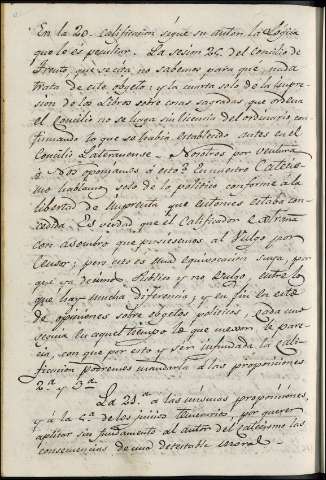 En la 20. calificacion sigue su autor la Logica
que le es peculiar. La sesion 24. del Concilio de
Trento, que se cita, no sabemos para què, nada
trata de este objeto; y la cuarta solo de la impre-
sion de los Libros sobre cosas sagradas que ordena
el Concilio no se haga sin licencia del ordinario, con-
firmando lo que se habia establecido antes en el
Concilio Lateranense. Nosotros por ventura
nos oponemos à esto? En nuestro Catecis-
mo hablamos solo de lo politico conforme à la
libertad de imprenta que entonces estaba con-
cedida. Es verdad que el Calificador extraña
con asombro que pusiesemos al Vulgo por
Censor; pero es mucha equivocacion suya, por
que ya decimos Publico y no Vulgo, entre lo
que hay mucha diferencia; y en fin en esto
de opiniones sobre objetos politicos, cada uno
seguia en aquel tiempo lo que mejor le pare-
cia, con que por esto y ser infundada la cali-
ficacion podremos mandarla à las proposiciones
2.ª y 3.ª
La 21.ª à las mismas proposiciones,
y à la 5.ª de los juicios temerarios, por querer
aplicar sin fundamento al autor del catecismo las
consecuencias de una detestable moral.